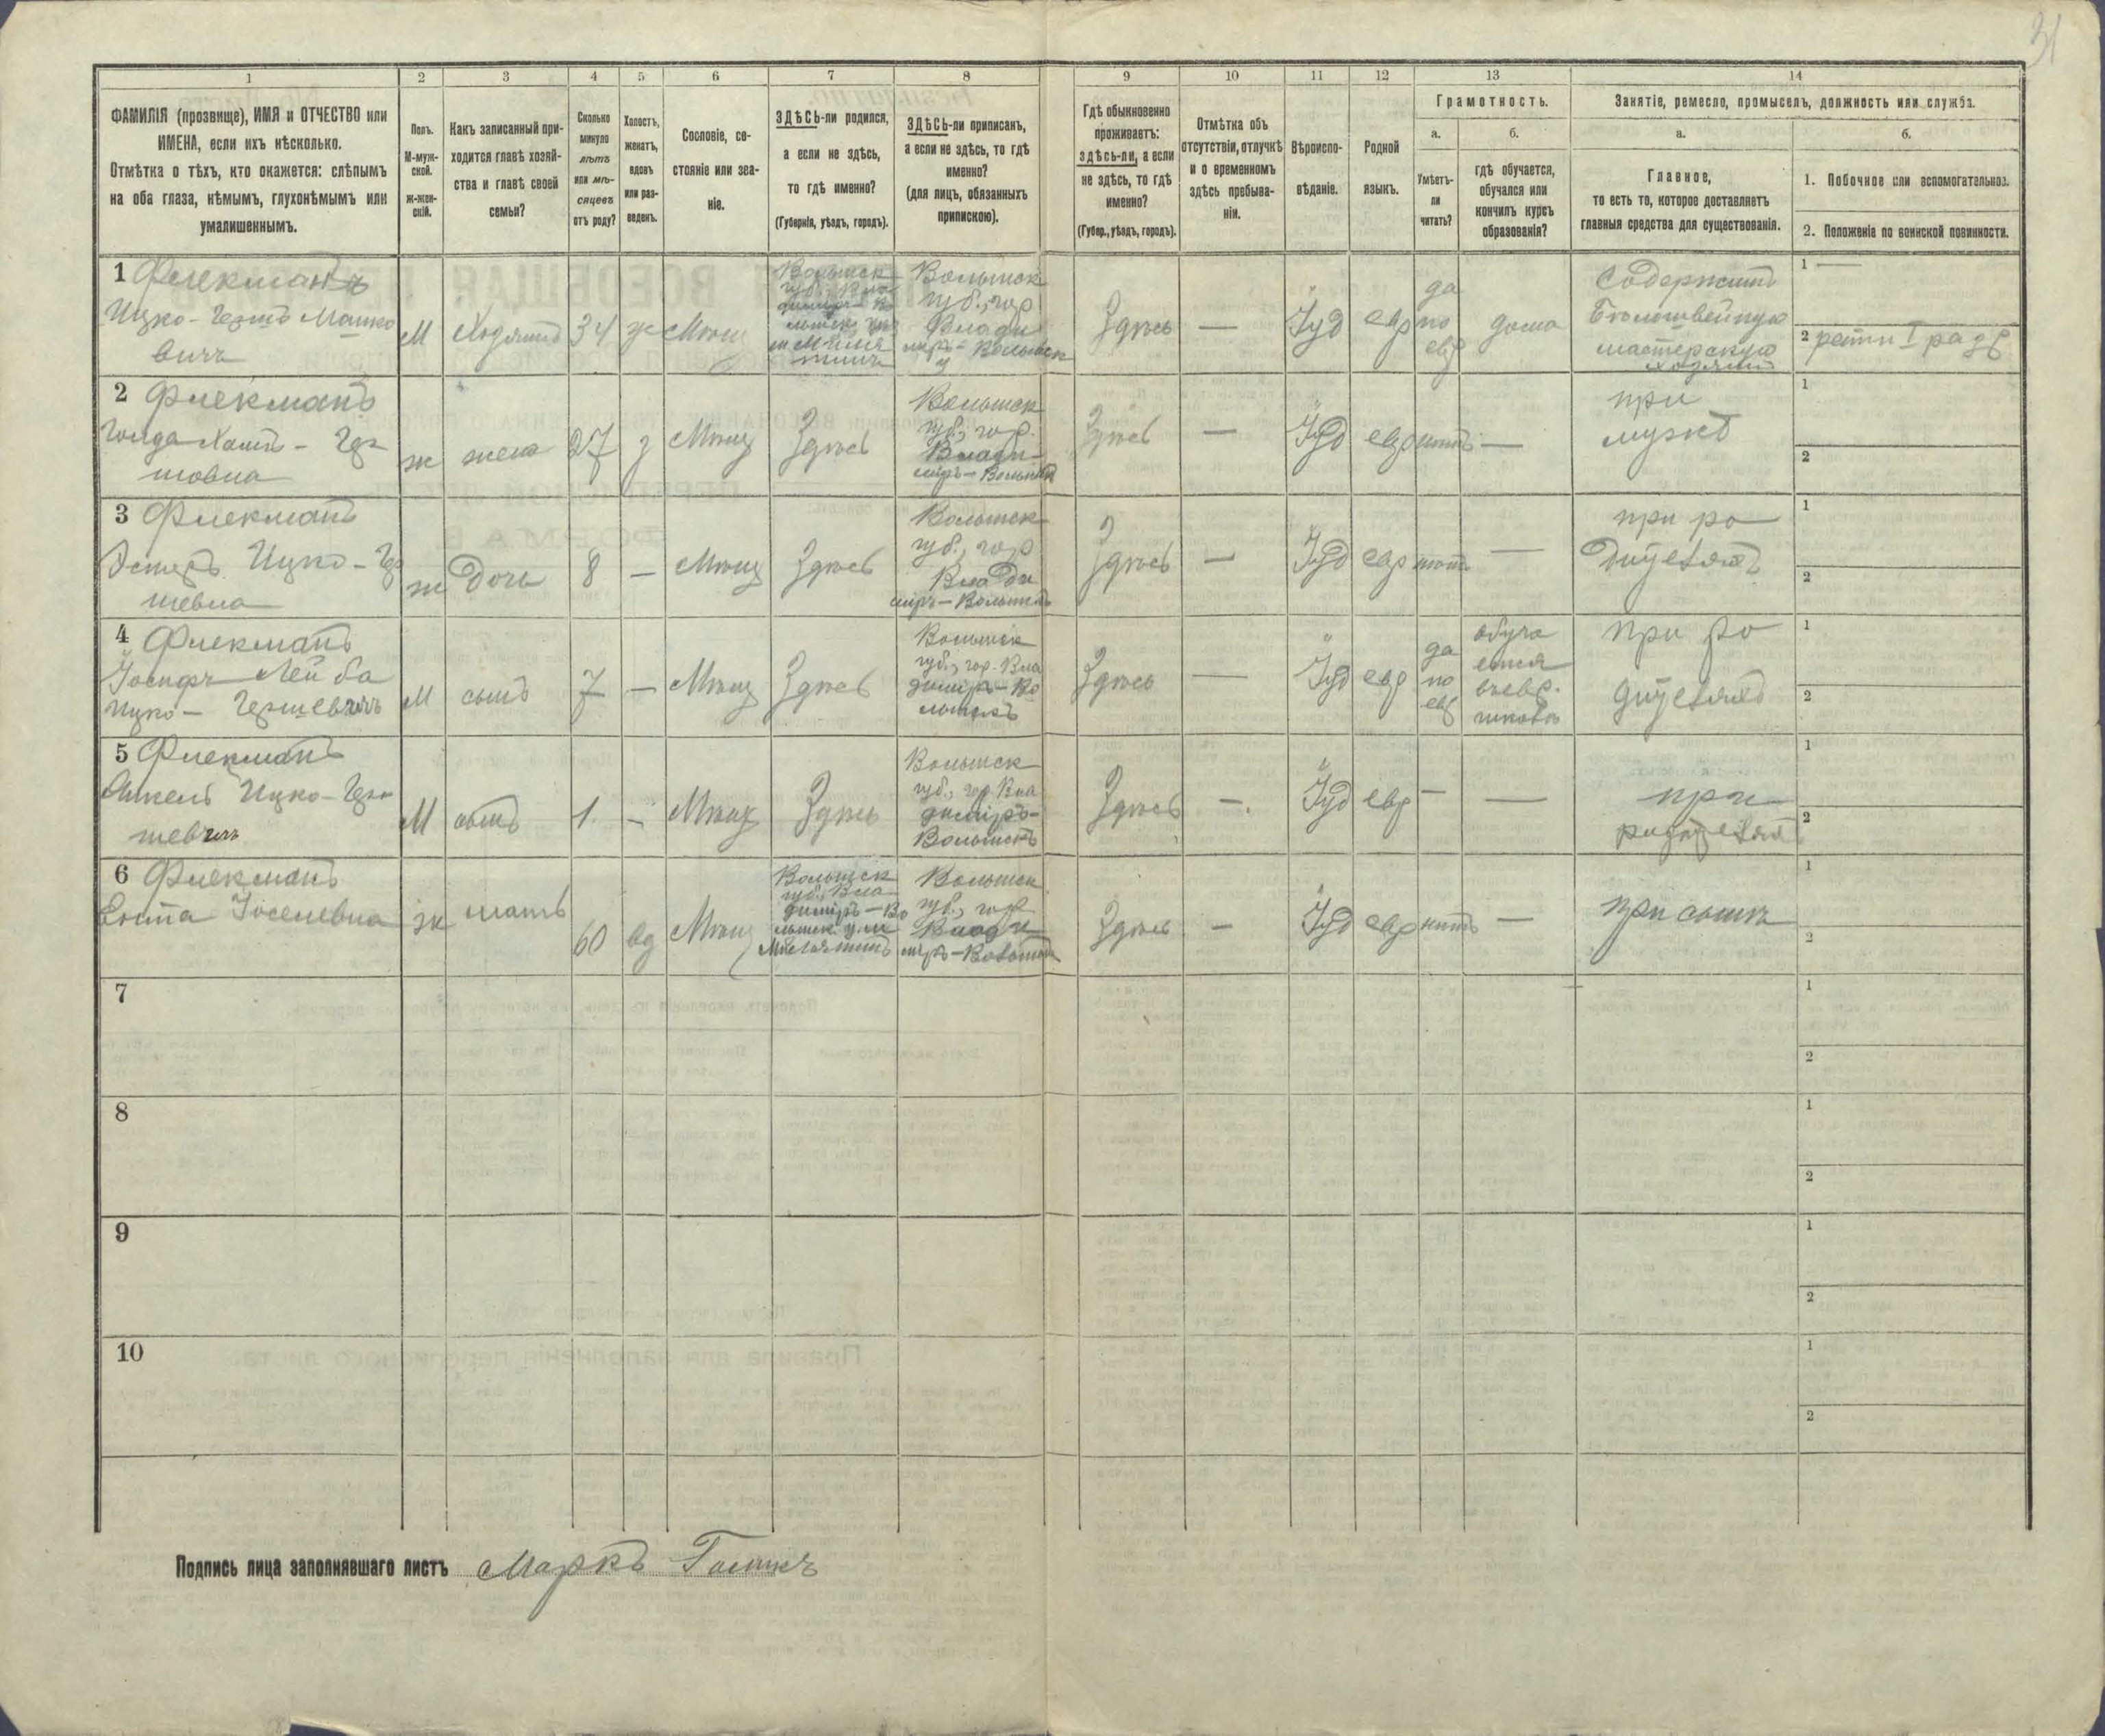 31
1 2 3 4 5 6 7 8 9 10 11 12 13 14
ФАМИЛІЯ (прозвище), ИМЯ и ОТЧЕСТВО или
ИМЕНА, если ихъ нѣсколько.
Отмѣтка о тѣхъ, кто окажется: слѣпымъ
на оба глаза, нѣмымъ, глухонѣмымъ или
умалишеннымъ.
Полъ.
М-муж-
ской.
ж-жен-
скій.
Какъ записанный при-
ходится главѣ хозяй-
ства и главѣ своей
семьи?
Сколько
минуло
лѣтъ
или мѣ-
сяцевъ
отъ роду?
Холостъ,
женатъ,
вдовъ
или раз-
веденъ.
Сословіе, со-
стояніе или зва-
ніе.
ЗДѢСЬ-ли родился,
а если не здѣсь,
то гдѣ именно?
(Губернія, уѣздъ, городъ).
ЗДѢСЬ-ли приписанъ,
а если не здѣсь, то гдѣ
именно?
(для лицъ, обязанныхъ
припискою).
Гдѣ обыкновенно
проживаетъ:
здѣсь-ли, а если
не здѣсь, то гдѣ
именно?
(Губер., уѣздъ, городъ).
Отмѣтка объ
отсутствіи, отлучкѣ
и о временномъ
здѣсь пребыва-
ніи.
Вѣроиспо-
вѣданіе.
Родной
языкъ.
Грамотность.
а.
Умѣетъ-
ли
читать?
б.
гдѣ обучается,
обучался или
кончилъ курсъ
образованія?
Занятіе, ремесло, промыселъ, должность или служба.
а.
Главное,
то есть то, которое доставляетъ
главныя средства для существованія.
б.
1. Побочное или вспомогательное.
2. Положеніе по воинской повинности.
1 Флекманъ
Ицко-Гершъ Мошко
вичъ
М
Хозяинъ
34
ж
Мѣщ
Волынск
губ., Вла
димиръ-Во
лынск.
Волынск
губ., гор
Влади
миръ-Волынск
Здѣсь
—
Іуд
евр
да
по
евр
дома
Содержитъ
Бѣлошвейную
мастерскую
хозяинъ
1 —
2 ратн I разр
2 Флекманъ
Голда Хаит- Гер
шовна
ж
жена
27
з
Мѣщ
Здѣсь
Волынск
губ., гор.
Влади-
миръ-Волынск
Здѣсь
—
Іуд
евр
нѣтъ
—
при
мужѣ
1
2
3 Флекманъ
Эстеръ Ицко-Гер
шевна
ж
Дочь
8
—
Мѣщ
Здѣсь
Волынск
губ., гор
Влади
миръ-Волынскъ
Здѣсь
—
Іуд
евр
нѣтъ
—
при ро
дителяхъ
1
2
4 Флекманъ
Іосифъ Лейба
Ицко- Гершевичъ
М
сынъ
7
—
Мѣщ
Здѣсь
Волынск
губ., гор. Вла
димиръ-Во
лынскъ
Здѣсь
—
Іуд
евр
да
по
евр
обуча
ется
въ евр.
школѣ
при ро
дителяхъ
1
2
5 Флекманъ
Ицко-Гер
шевичъ
М
сынъ
1
—
Мѣщ
Здѣсь
Волынск
губ., гор Вла
димиръ-
Волынскъ
Здѣсь
—.
Іуд
евр
—
—
при
родителяхъ
1
2
6 Флекманъ
Іоселевна
ж
мать
60
вд
Мѣщ
Волынск
губ., Вла-
димиръ-Во
лынск. у. м
Волынск
губ., гор
Влади
миръ-Волынск
Здѣсь
—
Іуд
евр
нѣтъ
—
при сынѣ
1
2
7
1
2
8
1
2
9
1
2
10
1
2
Подпись лица заполнявшаго листъ Маркъ